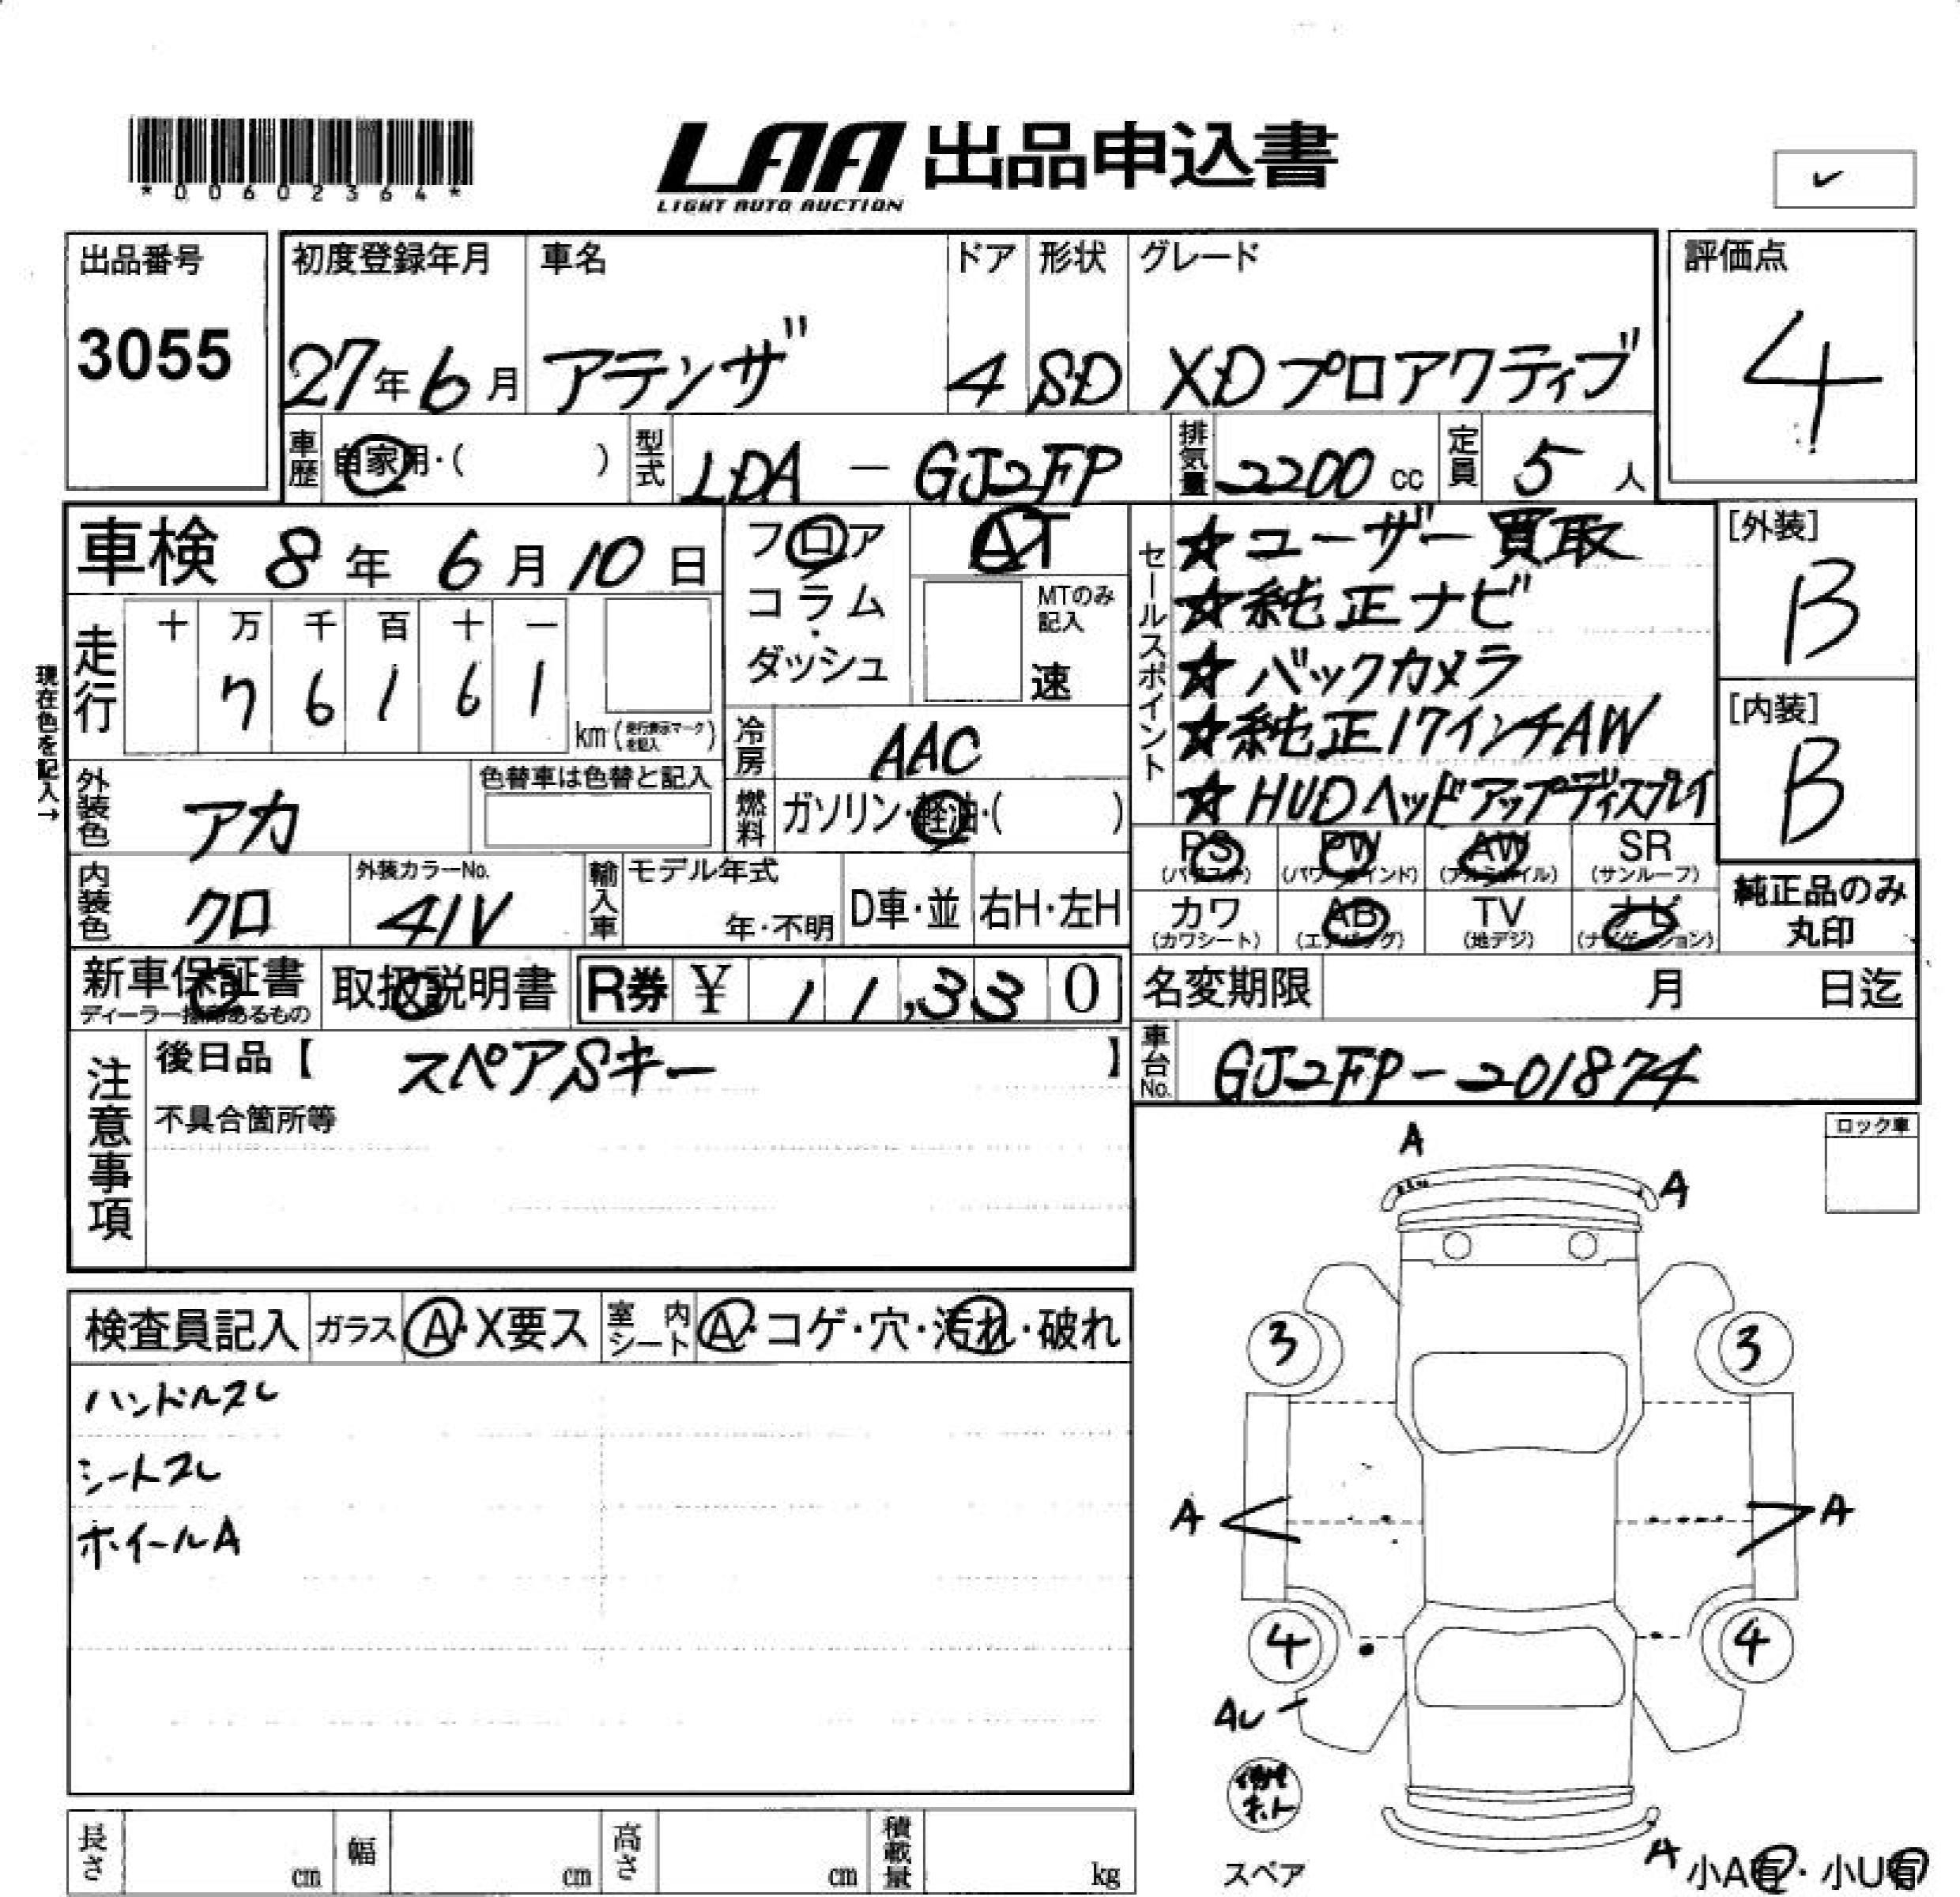 *00602364*
LAA 出品申込書
LIGHT AUTO AUCTION
✓
出品番号
3055
初度登録年月
27年6月
車名
アテンザ
ドア
4
形状
SD
グレード
XDプロアクティブ
評価点
4
車歴
自家用・( )
型式
LDA-GJ2FP
排気量
2200cc
定員
5人
車検 8年6月10日
フロア
コラム
・
ダッシュ
AT
MTのみ記入
速
セールスポイント
☆ユーザー買取
☆純正ナビ
☆バックカメラ
☆純正17インチAW
☆HUDヘッドアップディスプレイ
[外装]
B
[内装]
B
現在色を記入→
走行
十 万 千 百 十 一
7 6 1 6 1
km(走行表示マークを記入)
冷房
AAC
燃料
ガソリン・軽油・( )
外装色
アカ
色替車は色替と記入
内装色
クロ
外装カラーNo.
41V
輸入車
モデル年式
年・不明
D車・並
右H・左H
PS
(パワステ)
PW
(パワーウインド)
AW
(アルミホイル)
SR
(サンルーフ)
カワ
(カワシート)
AB
(エアバッグ)
TV
(地デジ)
ナビ
(ナビゲーション)
純正品のみ
丸印
新車保証書
ディーラー捺印あるもの
取扱説明書
R券 ¥ 11,330
名変期限 月 日迄
車台No.
GJ2FP-201874
注意事項
後日品【 スペアSキー 】
不具合箇所等
ロック車
検査員記入
ガラス
A・X要ス
室内シート
A・コゲ・穴・汚れ・破れ
ハンドルスレ
シートスレ
ホイールA
A
A
3
3
A
A
4
4
AU
A
スペア
小A有・小U有
長さ cm
幅 cm
高さ cm
積載量 kg